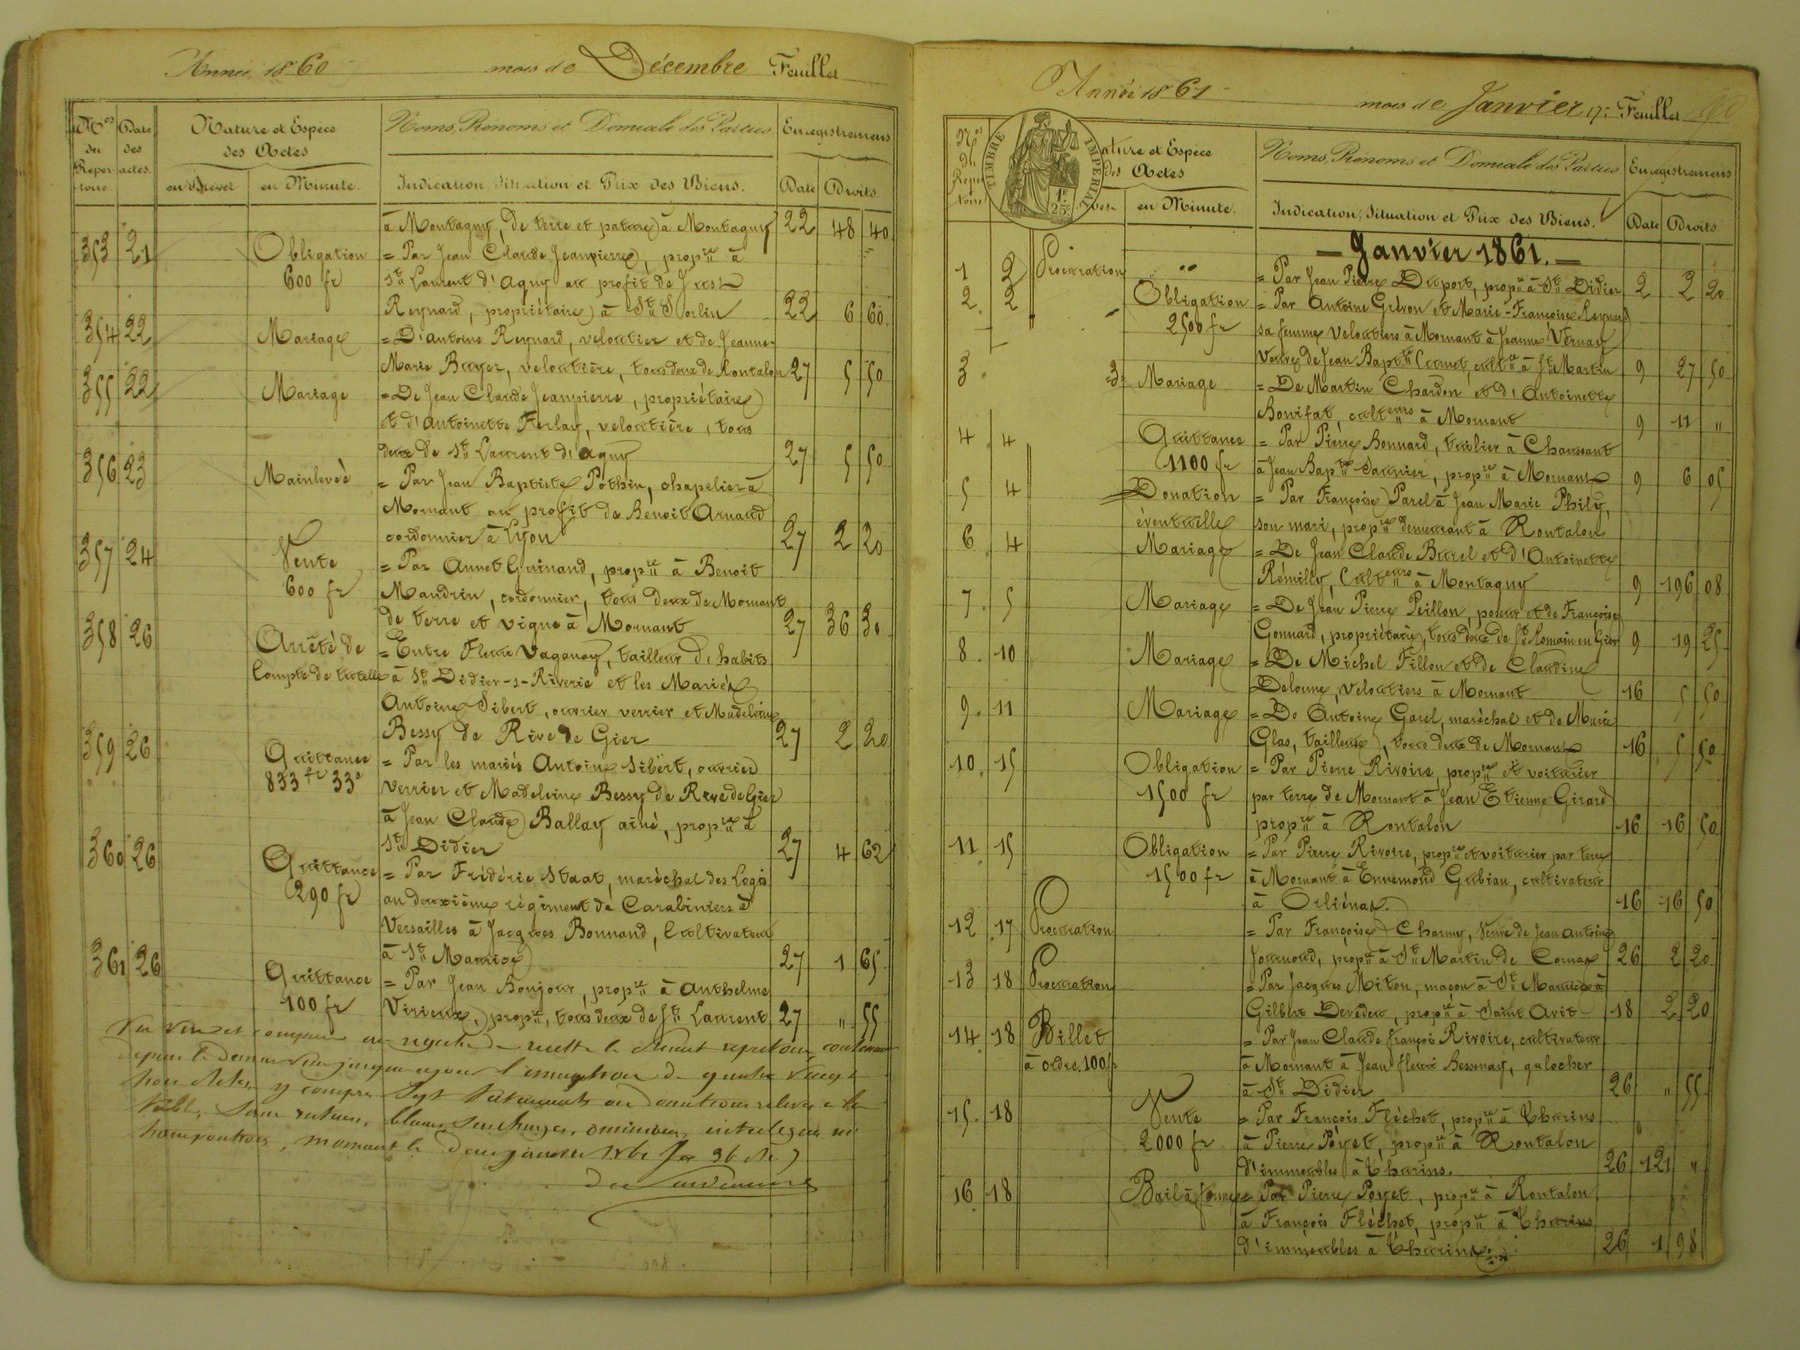 Année 1860 mois de Décembre Feuillet
Nos du Réper-toire. Date des actes. Nature et Espèce des Actes Noms, Prénoms et Domicile des Parties Enregistrement
en Brevet en Minute. Indication, Situation et Prix des Biens. Date Droits.
à Montagny, de terre et paterre à Montagny 22 48 40
353 21 Obligation = Par Jean Claude Jeanpierre, propre à
600 fr St Laurent d'Agny au profit de Just
Reynard, propriétaire à St Sorlin 22 6 60
354 22 Mariage = D'antoine Reynard, veloutier et de Jeanne-
Marie Buyer, veloutière, tous deux de Rontalon 27 5 50
355 22 Mariage = De Jean Claude Jeanpierre, propriétaire
et d'Antoinette Ferlay, veloutière, tous
deux de St Laurent d'Agny 27 5 50
356 23 Mainlevée = Par Jean Baptiste Pothin, chapelier à
Mornant au profit de Benoit Arnaud
cordonnier à Lyon 27 2 20
357 24 Vente = Par Annet Guinand, propre à Benoit
600 fr Mandrin, cordonnier, tous deux de Mornant
de terre et vigne à Mornant 27 36 30
358 26 Arrêté de = Entre Fleurie Vaganay, tailleur d'habits
Compte de tutelle à St Didier-s-Riverie et les Mariés
Antoine Sibert, ouvrier verrier et Madeleine
Bessy de Rive de Gier 27 2 20
359 26 Quittance = Par les mariés Antoine Sibert, ouvrier
833 fr 33c verrier et Madeleine Bessy de Rive de Gier
à Jean Claude Ballay ainé, propre à
St Didier 27 4 62
360 26 Quittance = Par Frédéric Staat, maréchal des Logis
290 fr au deuxième régiment de Carabiniers à
Versailles à Jacques Bonnand, Cultivateur
à St Maurice 27 1 65
361 26 Quittance = Par Jean Bonjour, propre à Anthelme
100 fr Virieux, propre, tous deux de St Laurent 27 " 55
Année 1861 mois de Janvier, 17e Feuillet
TIMBRE IMPERIAL 1f 25c
Nos du Réper toire Nature et Espèce des Actes Noms, Prénoms et Domicile des Parties Enregistrement
en Minute. Indication, Situation et Prix des Biens. Date Droits.
— Janvier 1861. —
1 2 Procuration = Par Jean Pierre Duport, propre à St Didier 2 2 20
2 2 Obligation = Par Antoine Grévon et Marie-Françoise Reynard
2500 fr sa femme veloutiers à Mornant à Jeanne Vernay
Veuve de Jean Bapte Cornet, cultre à St Martin 9 27 50
3 3 Mariage = De Martin Chardon et d'Antoinette
Bonifat cultreurs à Mornant 9 11 "
4 4 Quittance = Par Pierre Bonnard, tuilier à Chaussant
1100 fr à Jean Bapte Jaunier, propre à Mornant 9 6 05
5 4 Donation = Par Françoise Parel à Jean Marie Phily,
éventuelle son mari, propre demeurant à Rontalon
6 4 Mariage = De Jean Claude Burel et d'Antoinette
Rémilly, Cultreurs à Montagny 9 196 08
7 5 Mariage = De Jean Pierre Peillon, poseur et de Françoise
Gonnard, propriétaire, tous deux de St Romain en Gier 9 19 25
8 10 Mariage = De Michel Fillon et de Claudine
Delorme, veloutiers à Mornant 16 5 50
9 11 Mariage = De Antoine Garel, maréchal et de Marie
Glas, tailleuse, tous deux de Mornant 16 5 50
10 15 Obligation = Par Pierre Rivoire, propre et voiturier
1500 fr par terre de Mornant à Jean Etienne Girard
propre à Rontalon 16 16 50
11 15 Obligation = Par Pierre Rivoire, propre et voiturier par terre
1500 fr à Mornant à Ennemond Gubian, cultivateur
à Orliénas 16 16 50
12 17 Procuration = Par Françoise Charmy, Veuve de Jean Antoine
Journoud, propre à St Martin de Cornas 26 2 20
13 18 Procuration = Par Jacques Miton, maçon à St Maurice à
Gilbert Devedeux, propre à Saint Avit 18 2 20
14 18 Billet = Par Jean Claude François Rivoire, cultivateur
à ordre. 100 f à Mornant à Jean fleury Bessenay, galocher
à St Didier 26 " 55
15 18 Vente = Par François Fléchet, propre à Thurins
2000 fr à Pierre Poyet, propre à Rontalon
d'immeubles à Thurins. 26 121 "
16 18 Bail à ferme = Par Pierre Poyet, propre à Rontalon
à François Fléchet, propre à Thurins
d'immeubles à Thurins 26 1 98